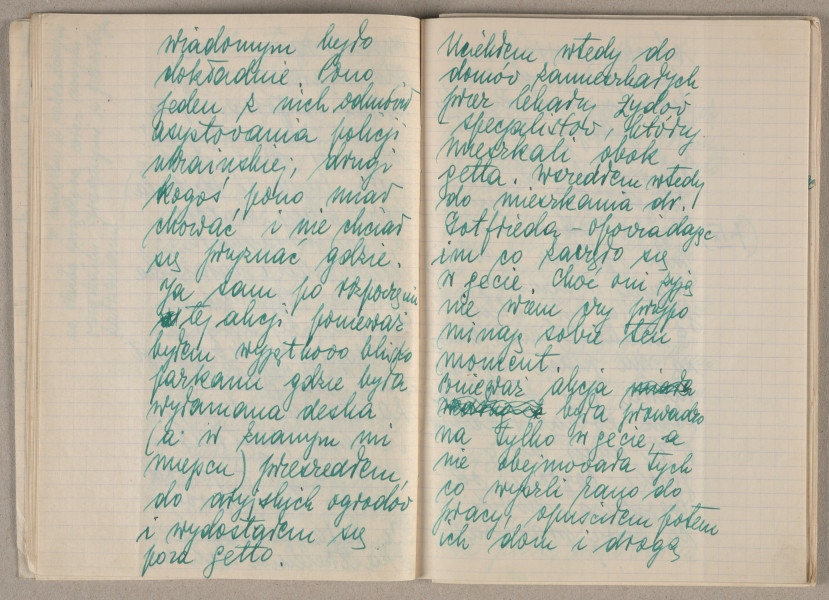 wiadomym było
dokładnie. Pono
jeden z nich odmówił
asystowania policji
ukraińskiej, drugi
kogoś pono miał
chować i nie chciał
się przyznać gdzie.
Ja sam po rozpoczęciu
tej akcji ponieważ
byłem wyjątkowo blisko
parkanu gdzie była
wyłamana deska
(a w znanym mi
miejscu) przeszedłem
do aryjskich ogrodów
i wydostałem się
poza getto.
Uciekłem wtedy do
domów zamieszkałych
przez lekarzy Żydów
specjalistów, którzy
mieszkali obok
getta. Wszedłem wtedy
do mieszkania dr.
Gotfrieda - opowiadając
im co zaczęło się
w gecie. Choć oni żyją
nie wiem czy przypo
minają sobie ten
moment.
Ponieważ akcja
była prowadzo
na tylko w gecie, a
nie obejmowała tych
co wyszli rano do
pracy, opuściłem potem
ich dom i drogą